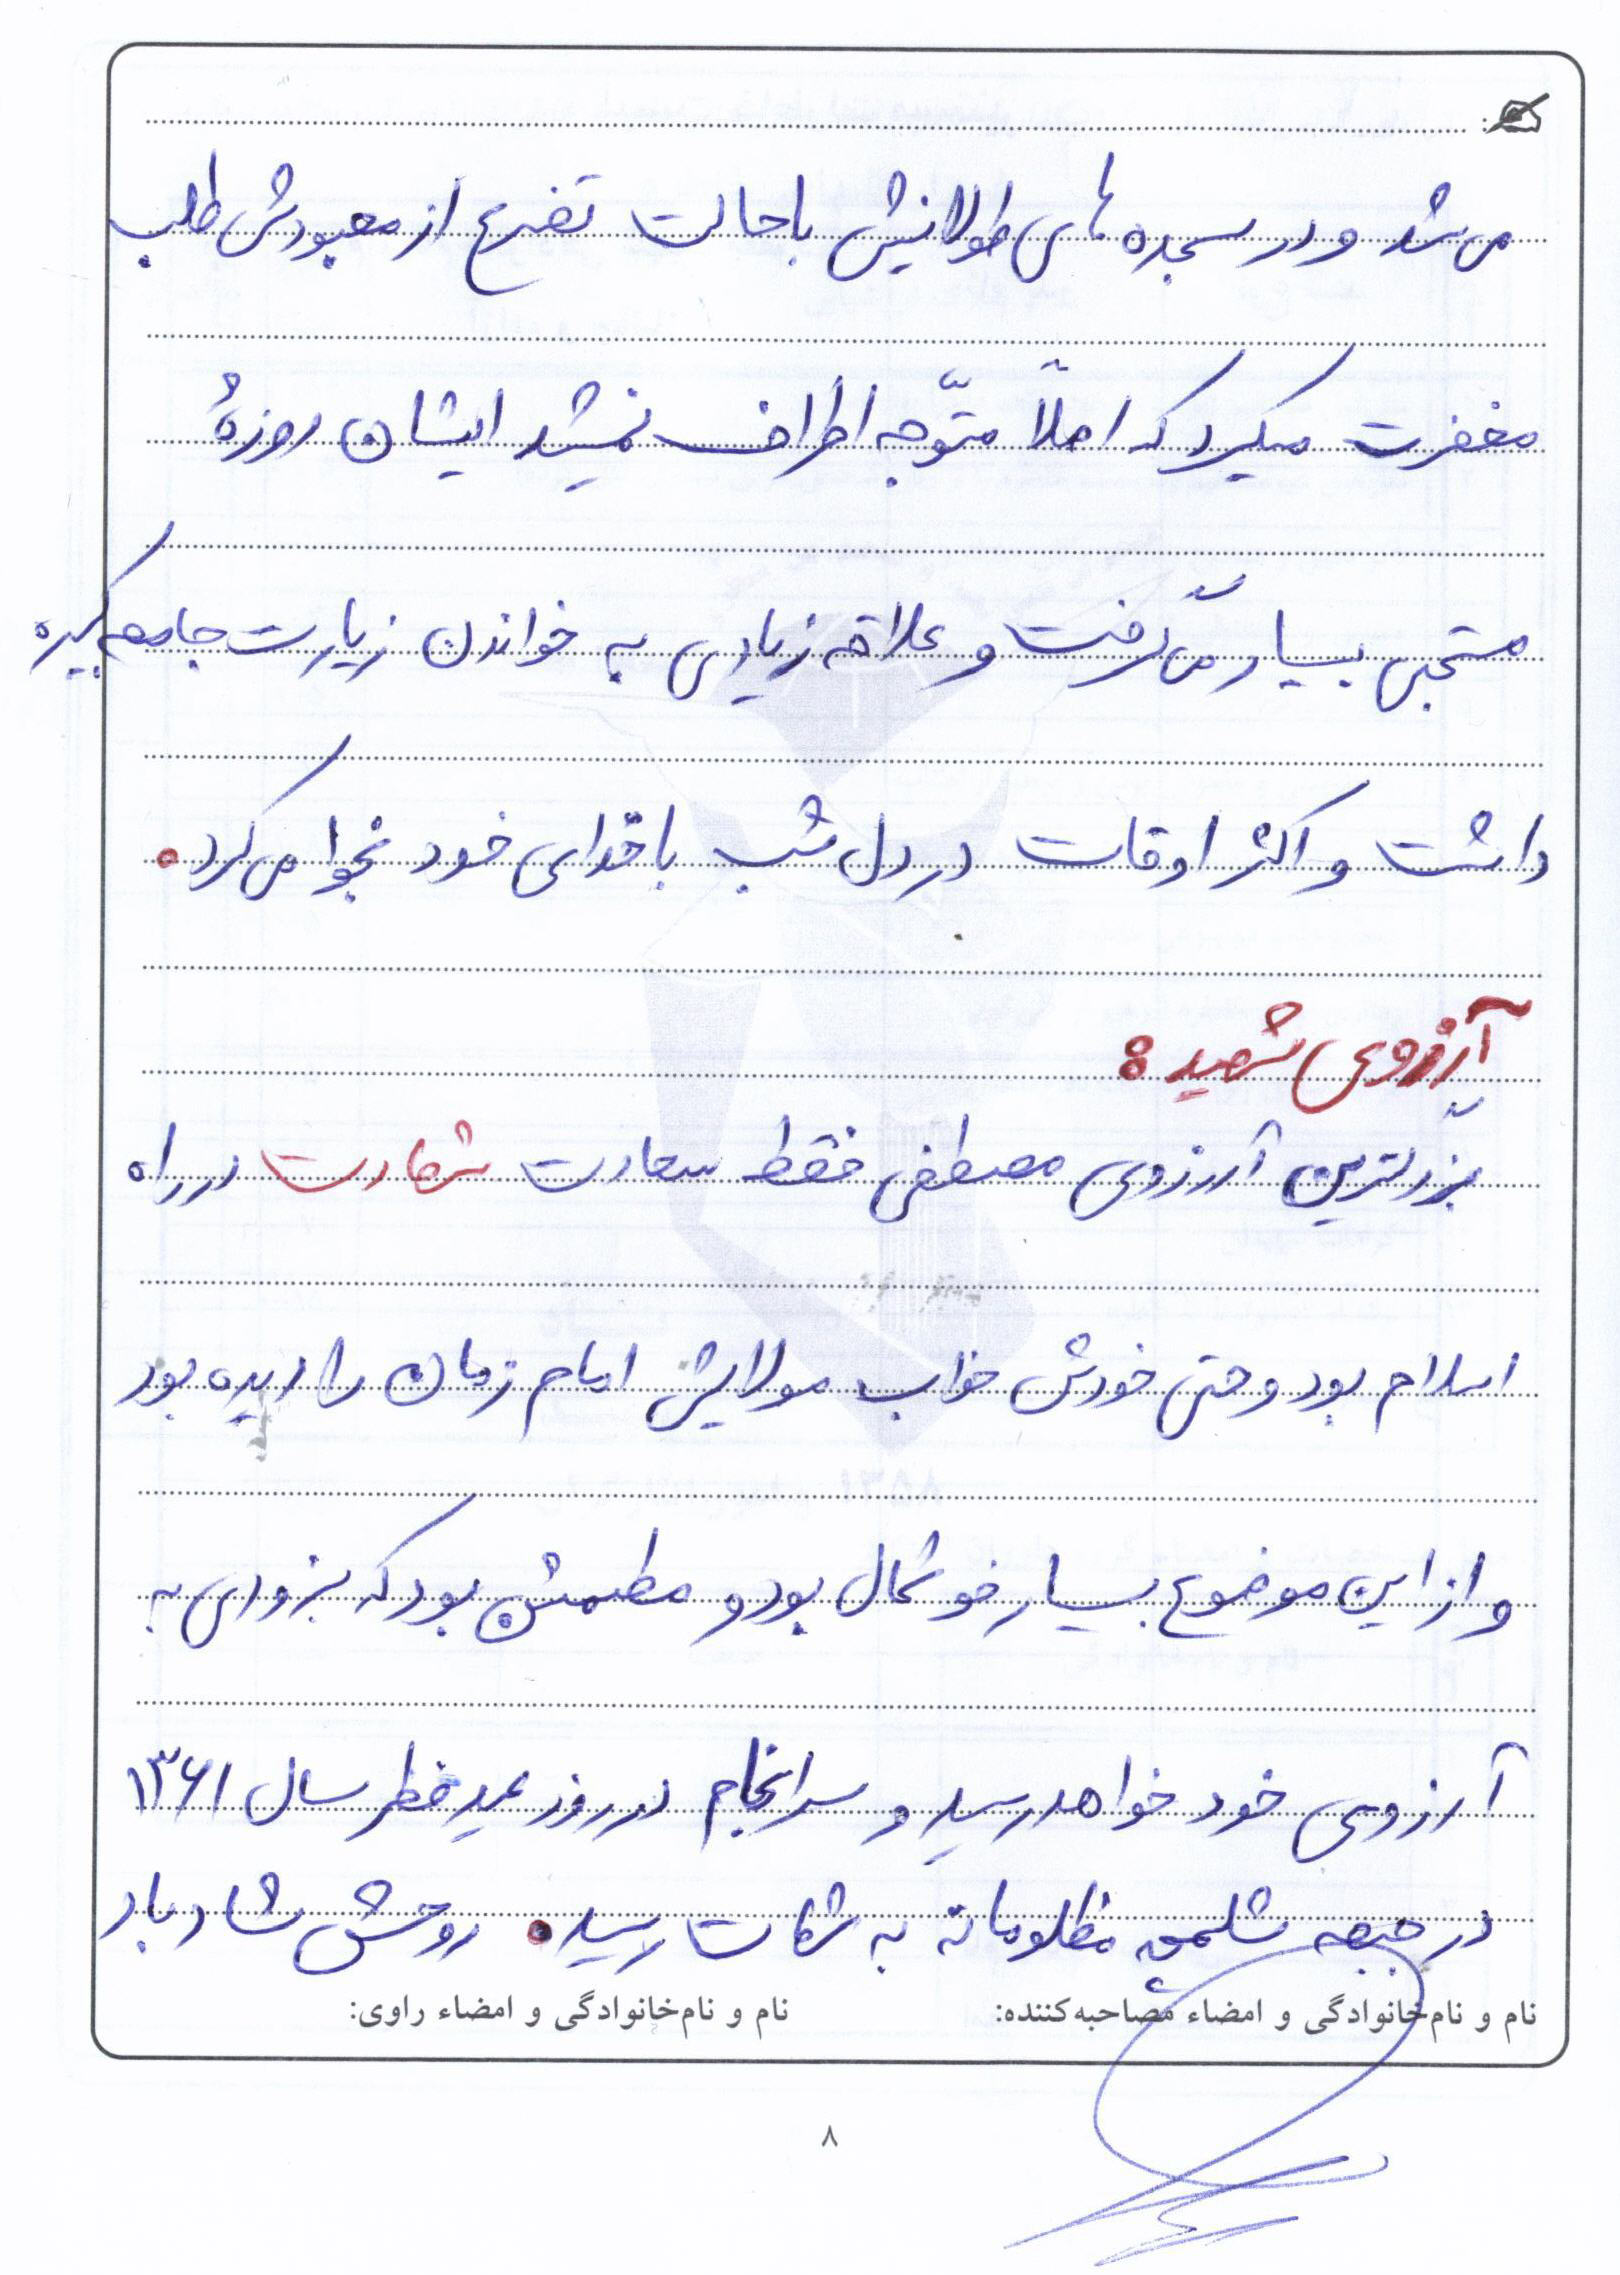 می شد و در سجده های طولانیش با حالت تضرع از معبودش طلب
مغفرت میکرد که اصلاً متوّجه اطراف نمیشد ایشان روزهٔ
مستحبی بسیار می گرفت و علاقه زیادی به خواندن زیارت جامعه کبیره
داشت و اکثر اوقات در دل شب با خدای خود نجوا می کرد.
آرزوی شهید:
بزرگترین آرزوی مصطفی فقط سعادت شهادت در راه
اسلام بود و حتی خودش خواب مولایش امام زمان را دیده بود
و از این موضوع بسیار خوشحال بود و مطمئن بود که بزودی به
آرزوی خود خواهد رسید و سرانجام در روز عید فطر سال ۱۳۶۱
در جبهه شلمچه مظلومانه به شهادت رسید. روحش شاد باد
نام و نام‌خانوادگی و امضاء مصاحبه‌کننده: نام و نام‌خانوادگی و امضاء راوی:
۸